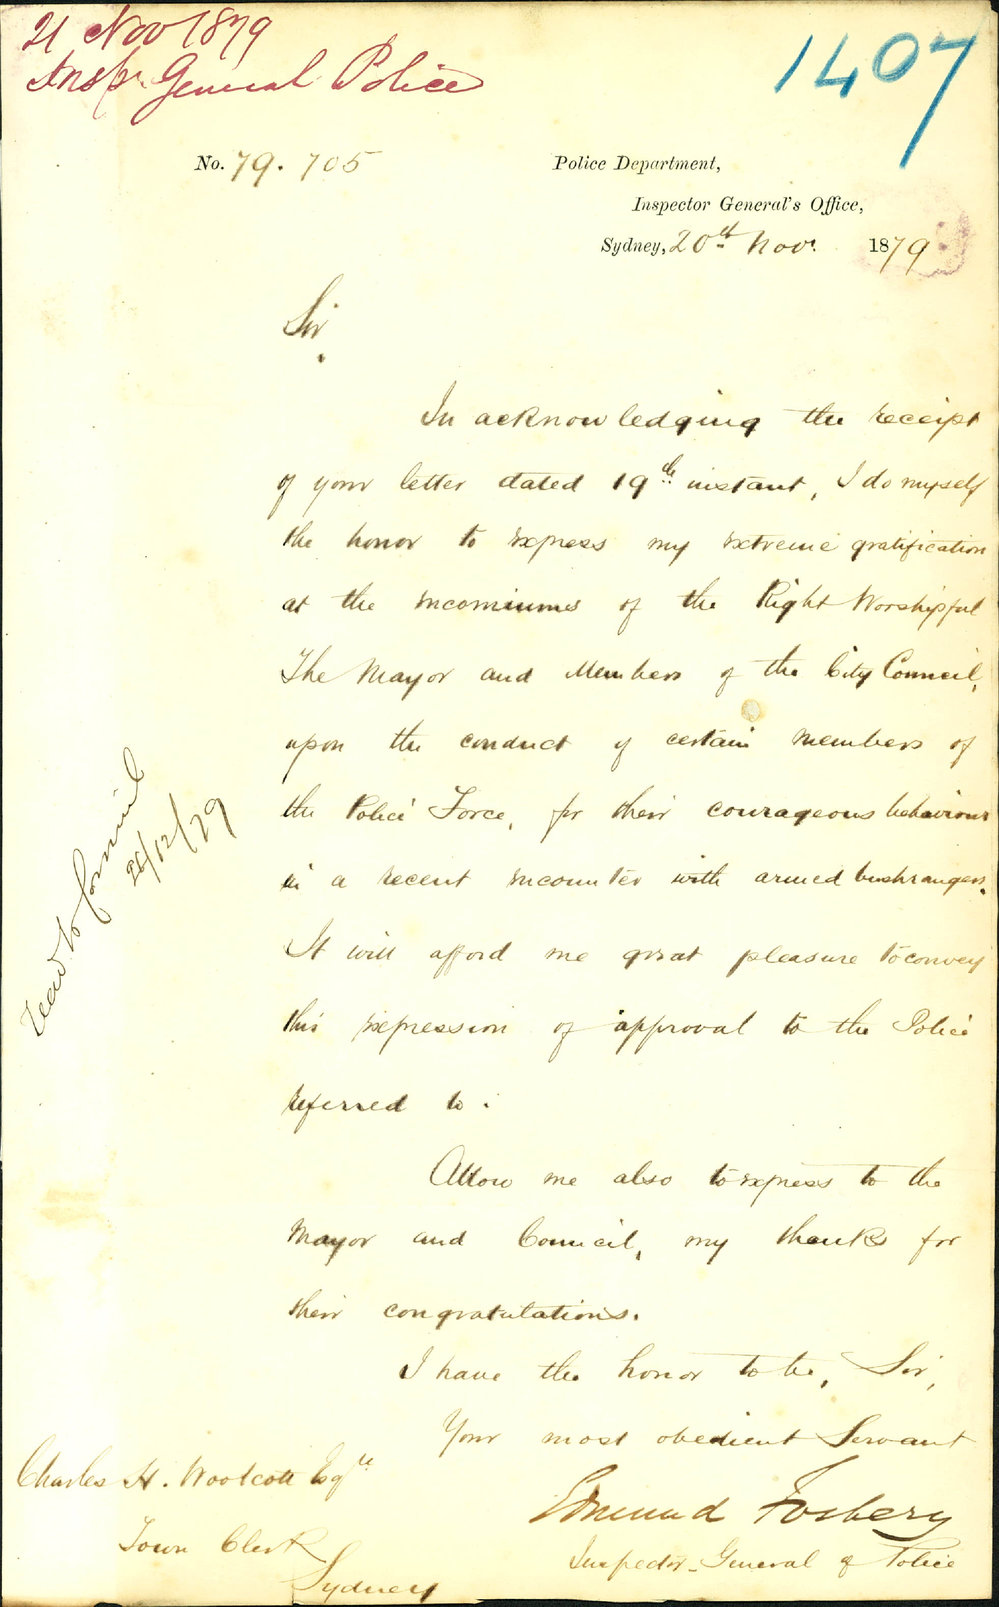 21 Nov 1879
Inspr General Police
1407
No. 79.705
Police Department,
Inspector General's Office,
Sydney, 20th Nov. 1879
Sir,
In acknowledging the receipt
of your letter dated 19th instant, I do myself
the honor to express my extreme gratification
at the encomiums of the Right Worshipful
The Mayor and Members of the City Council,
upon the conduct of certain members of
the Police Force, for their courageous behaviour
in a recent encounter with armed bushrangers.
It will afford me great pleasure to convey
this expression of approval to the Police
referred to.
Allow me also to express to the
Mayor and Council, my thanks for
their congratulations.
I have the honor to be, Sir,
Your most obedient Servant
Edmund Fosbery
Inspector-General of Police
Charles H. Woolcott Esqre
Town Clerk
Sydney
Read to Council
/12/79